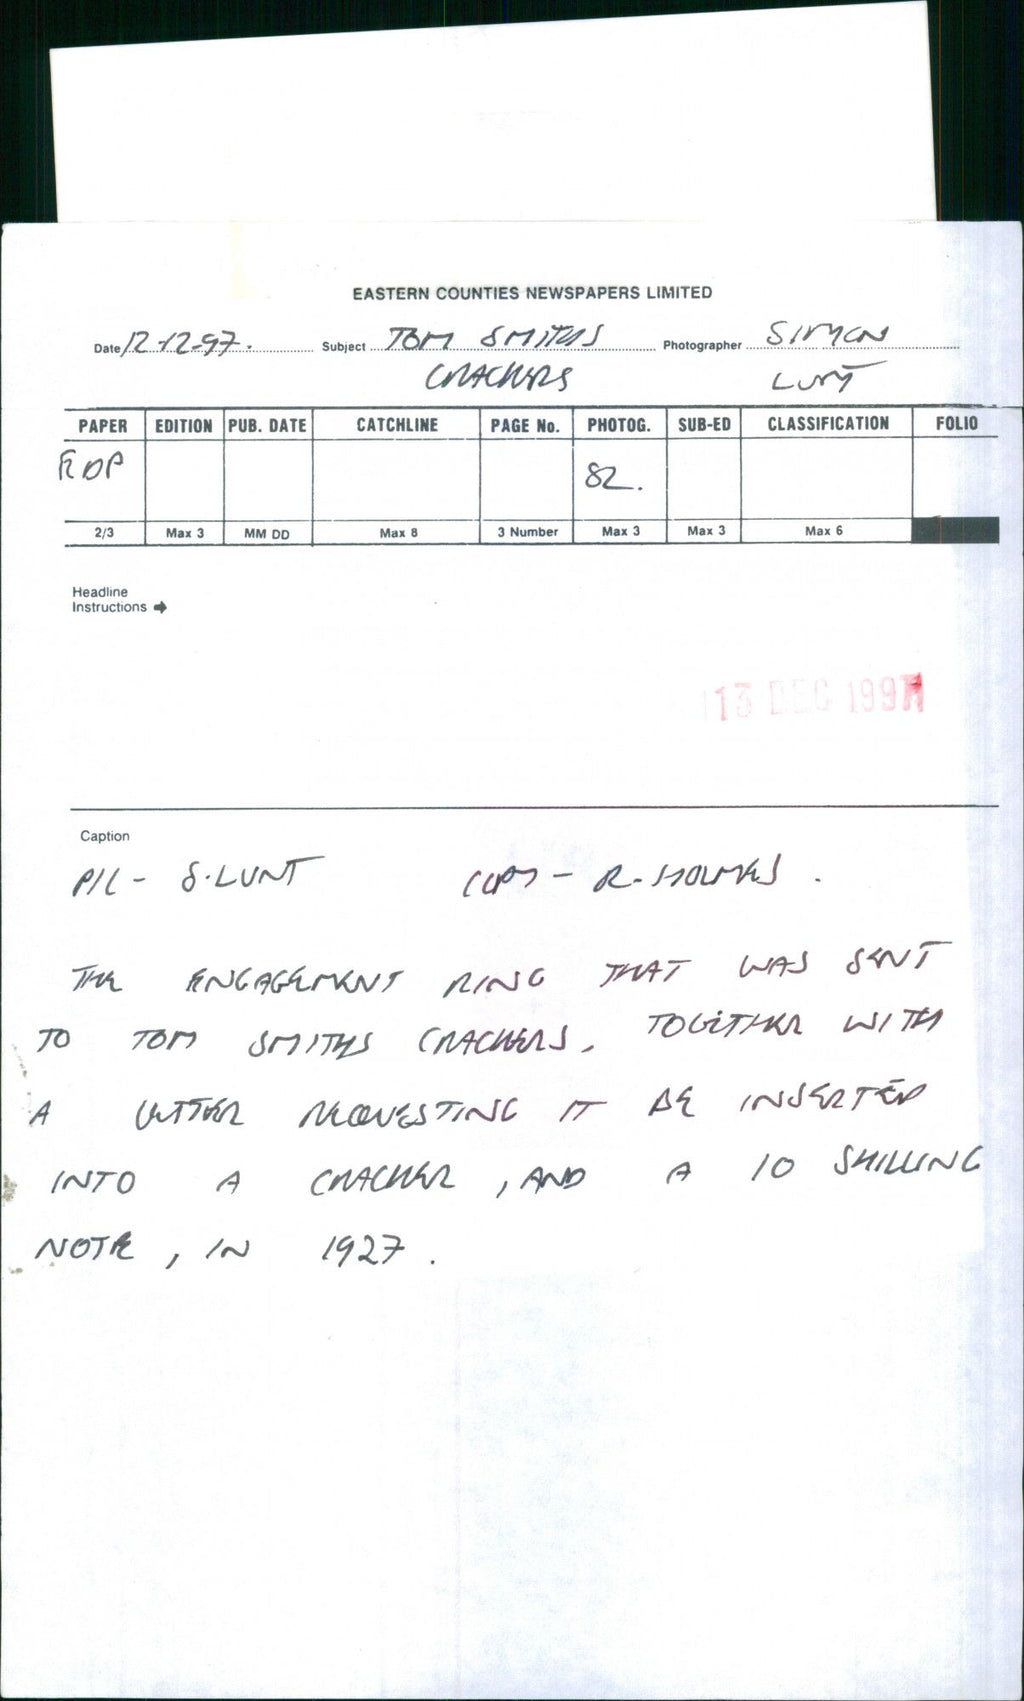 EASTERN COUNTIES NEWSPAPERS LIMITED
Date 12-12-97. Subject TOM SMITHS Photographer SIMON
CRACKERS LUNT
PAPER EDITION PUB. DATE CATCHLINE PAGE No. PHOTOG. SUB-ED CLASSIFICATION FOLIO
EDP 82.
2/3 Max 3 MM DD Max 8 3 Number Max 3 Max 3 Max 6
Headline
Instructions ➔
13 DEC 1997
Caption
PIC - S. LUNT COPY - R. HOLMES.
THE ENGAGEMENT RING THAT WAS SENT
TO TOM SMITHS CRACKERS, TOGETHER WITH
A LETTER REQUESTING IT BE INSERTED
INTO A CRACKER, AND A 10 SHILLING
NOTE, IN 1927.